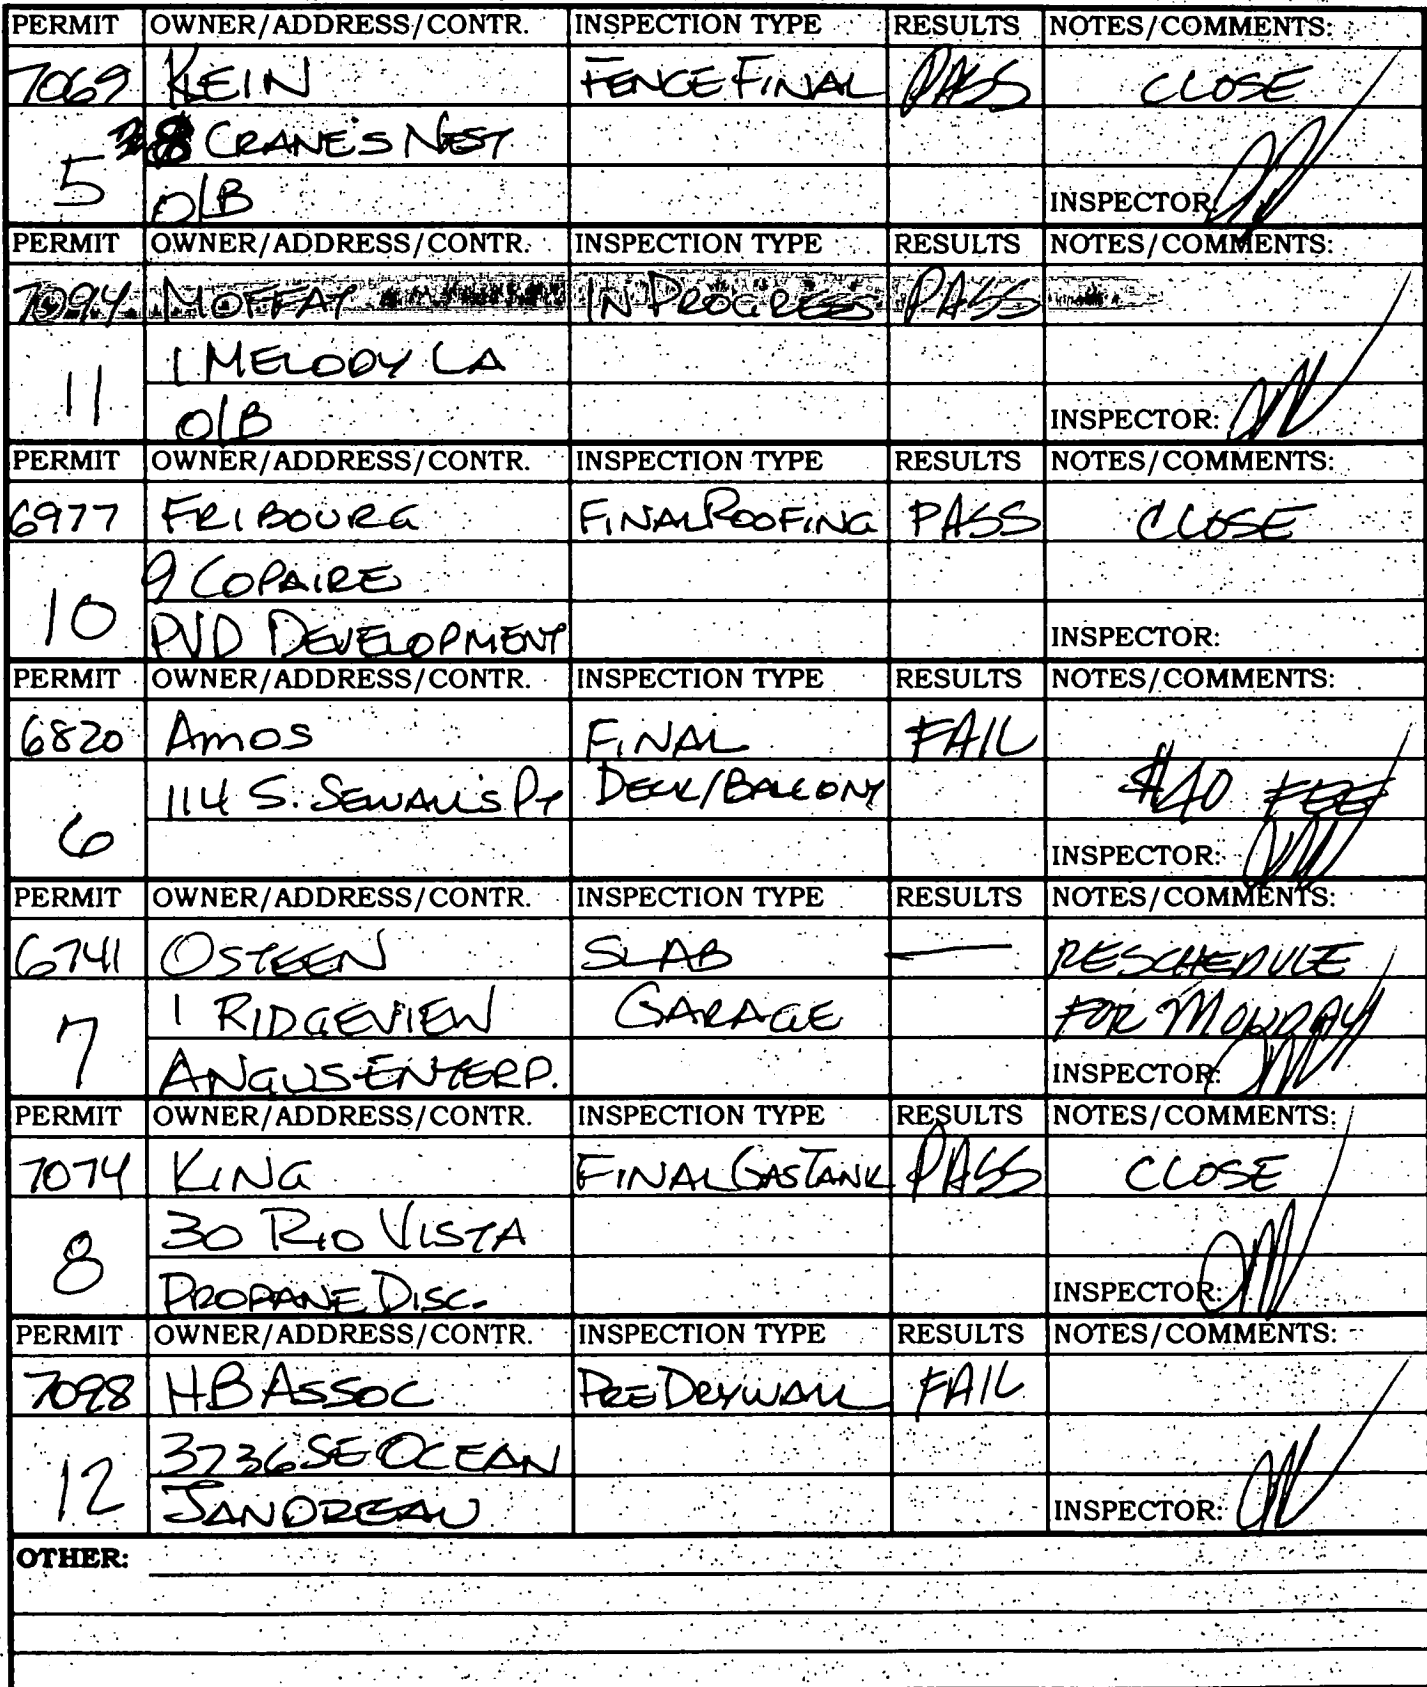 PERMIT OWNER/ADDRESS/CONTR. INSPECTION TYPE RESULTS NOTES/COMMENTS:
7069 KLEIN FENCE FINAL PASS CLOSE
CRANE'S NEST
5
O/B INSPECTOR:
PERMIT OWNER/ADDRESS/CONTR. INSPECTION TYPE RESULTS NOTES/COMMENTS:
7094 MOFFAT IN PROGRESS PASS
1 MELODY LA
11
O/B INSPECTOR:
PERMIT OWNER/ADDRESS/CONTR. INSPECTION TYPE RESULTS NOTES/COMMENTS:
6977 FRIBOURG FINAL ROOFING PASS CLOSE
9 COPAIRE
10
PVD DEVELOPMENT INSPECTOR:
PERMIT OWNER/ADDRESS/CONTR. INSPECTION TYPE RESULTS NOTES/COMMENTS:
6820 AMOS FINAL FAIL
114 S. SEWALL'S PT DECK/BALCONY $40 FEE
6
INSPECTOR:
PERMIT OWNER/ADDRESS/CONTR. INSPECTION TYPE RESULTS NOTES/COMMENTS:
6741 OSTEEN SLAB — RESCHEDULE
1 RIDGEVIEW GARAGE FOR MONDAY
7
ANGUS ENTERP. INSPECTOR:
PERMIT OWNER/ADDRESS/CONTR. INSPECTION TYPE RESULTS NOTES/COMMENTS:
7074 KING FINAL GAS TANK PASS CLOSE
30 RIO VISTA
8
PROPANE DISC. INSPECTOR:
PERMIT OWNER/ADDRESS/CONTR. INSPECTION TYPE RESULTS NOTES/COMMENTS:
7098 HB ASSOC PRE DRYWALL FAIL
3736 SE OCEAN
12
JANDREAU INSPECTOR:
OTHER: